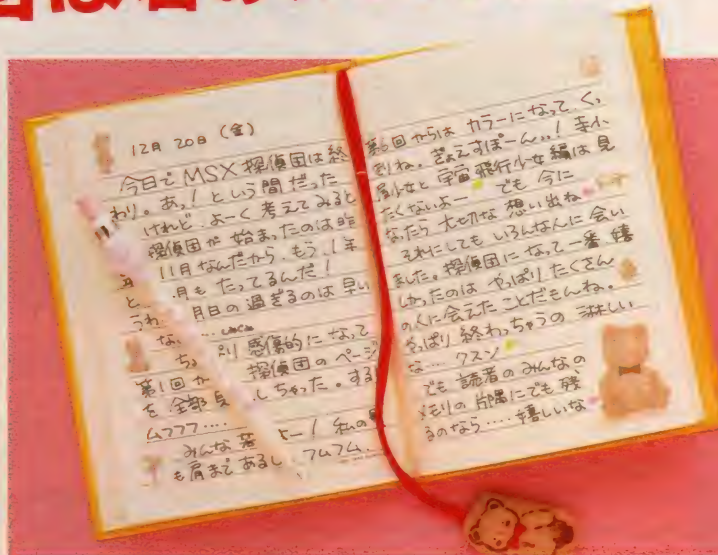 12月 20日 (金)
今日で MSX 探偵団は終
わり。あっ!という間だった
けれど、よーく考えてみると
探偵団が 始まったのは昨
11月なんだから、もう、1年
と 月も たってるんだ!
うわ 月日の過ぎるのは早い
な…
り 感傷的に なって
第1回か 探偵団のページ
を 全部見 しちゃった。する
ムフフフ‥‥
みんな 若 よー! 私の
も肩まで あるし、フムフム‥
第 回からは カラーになって くっ
きりね。ぎょえすぽーん、、!
少女と 宇宙飛行少女 編は 見
たくないよー でも 今に
なったら 大切な 想い出ね
それにしても いろんな人に 会い
ました。探偵団に なって 一番 嬉
しかったのは やっぱり たくさん
の人に会えた ことだもんね。
やっぱり 終わっちゃうの 淋しい
な… クスン
でも 読者の みんなの
メモリの 片隅にでも 残
るのなら‥‥‥嬉しいな